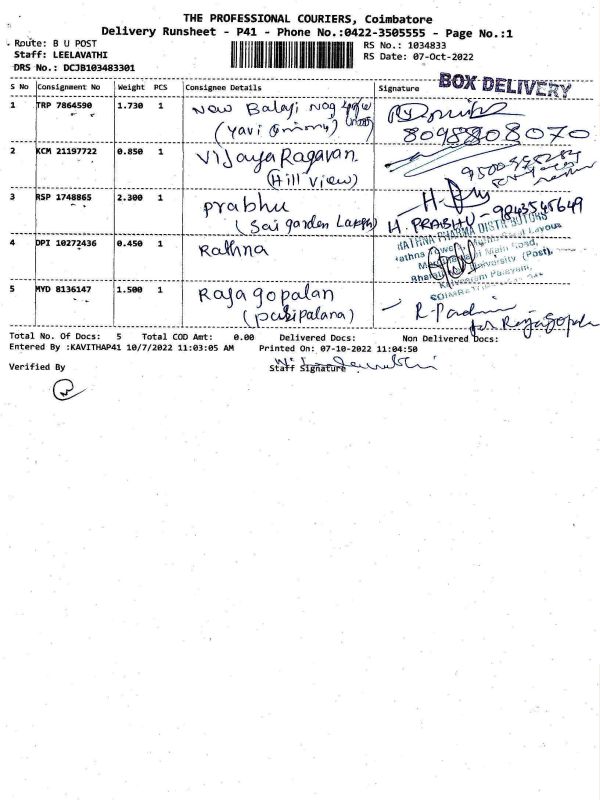 THE PROFESSIONAL COURIERS, Coimbatore
Delivery Runsheet - P41 - Phone No.:0422-3505555 - Page No.:1
Route: B U POST
RS No.: 1034833
Staff: LEELAVATHI
RS Date: 07-Oct-2022
DRS No.: DCJB103483301
BOX DELIVERY
S No Consignment No Weight PCS Consignee Details Signature
1 TRP 7864590 1.730 1 New Balaji Nag
(Yavi
8098808070
2 KCM 21197722 0.850 1 Vijaya Ragavan
(Hill View)
3 RSP 1748865 2.300 1 Prabhu
(Sai garden
H. PRABHU - 9843545649
4 DPI 10272436 0.450 1 Rathna
RATHNA PHARMA DISTRIBUTORS
5 MYD 8136147 1.500 1 Rajagopalan
R. Padmin
for Rajagopala
Total No. Of Docs: 5 Total COD Amt: 0.00 Delivered Docs: Non Delivered Docs:
Entered By :KAVITHAP41 10/7/2022 11:03:05 AM Printed On: 07-10-2022 11:04:50
Verified By Staff Signature